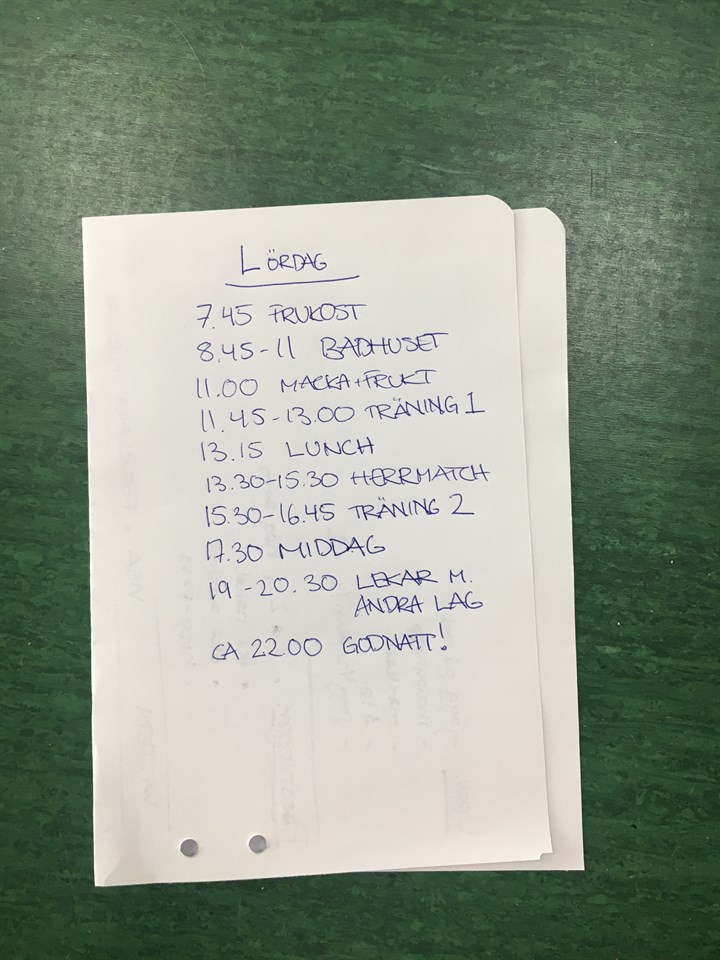 LÖRDAG
7.45 FRUKOST
8.45-11 BADHUSET
11.00 MACKA+FRUKT
11.45-13.00 TRÄNING 1
13.15 LUNCH
13.30-15.30 HERRMATCH
15.30-16.45 TRÄNING 2
17.30 MIDDAG
19-20.30 LEKAR M.
ANDRA LAG
CA 22.00 GODNATT!